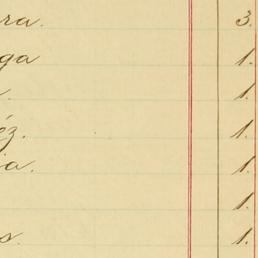 ra. 3.
ga 1.
. 1.
éz. 1.
ia. 1.
1.
s. 1.